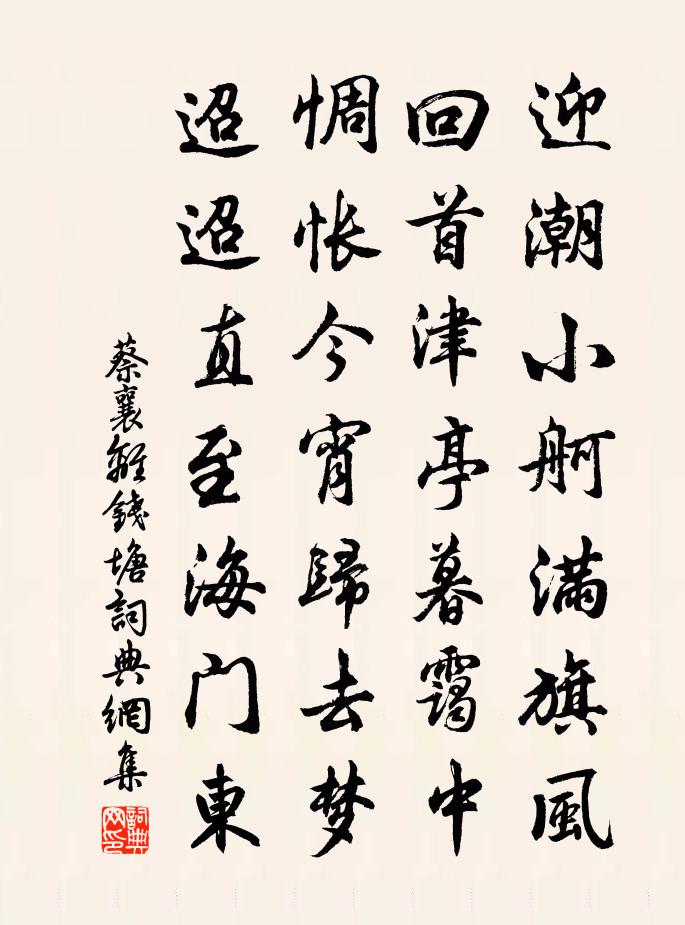 迎潮小舸满旗風
回首津亭暮靄中
惆怅今宵歸去梦
迢迢直至海门東
蔡襄離錢塘詞典網集
詞典網印